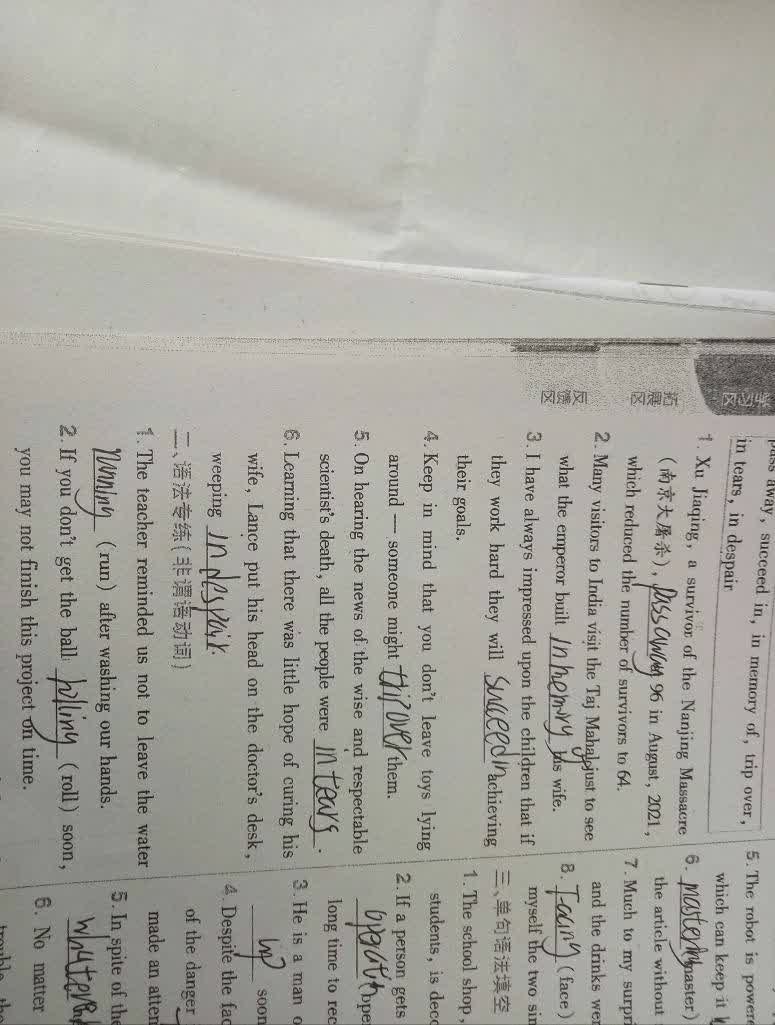 学习区
拓展区
反馈区
pass away, succeed in, in memory of, trip over,
in tears, in despair
1. Xu Jiaqing, a survivor of the Nanjing Massacre
(南京大屠杀), pass away 96 in August, 2021,
which reduced the number of survivors to 64.
2. Many visitors to India visit the Taj Mahal just to see
what the emperor built in memory his wife.
3. I have always impressed upon the children that if
they work hard they will succeed in achieving
their goals.
4. Keep in mind that you don't leave toys lying
around — someone might trip over them.
5. On hearing the news of the wise and respectable
scientist's death, all the people were in tears.
6. Learning that there was little hope of curing his
wife, Lance put his head on the doctor's desk,
weeping in despair.
二、语法专练(非谓语动词)
1. The teacher reminded us not to leave the water
running (run) after washing our hands.
2. If you don't get the ball rolling (roll) soon,
you may not finish this project on time.
5. The robot is powere
which can keep it
6. mastering (master)
the article without
7. Much to my surpri
and the drinks wer
8. Facing (face)
myself the two sin
三、单句语法填空
1. The school shop,
students, is deco
2. If a person gets
(ope
long time to rec
3. He is a man o
up soon
4. Despite the fac
of the danger
made an atten
5. In spite of the
whatever
6. No matter
trouble, the